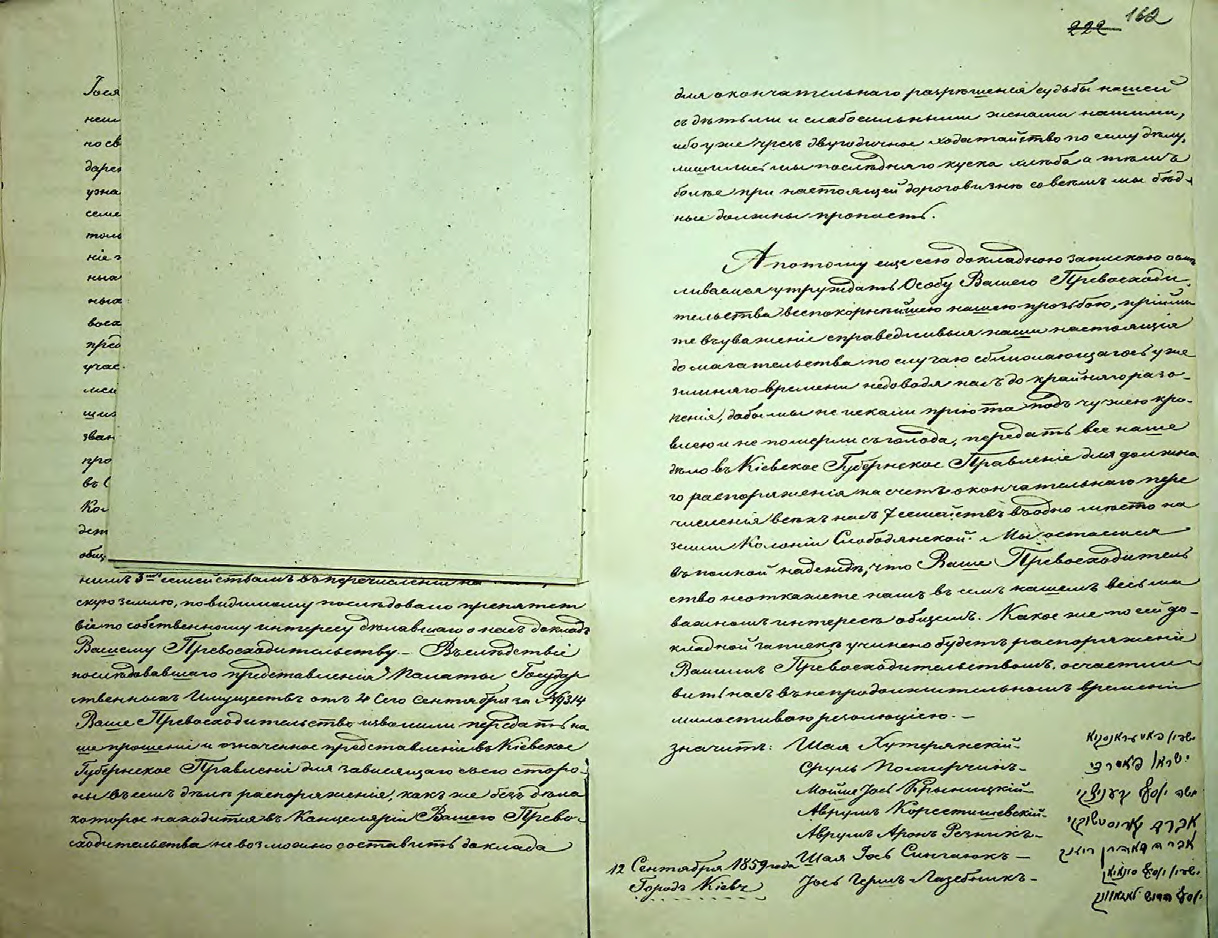 222 162
Гося
неш
по св
даре
узна
семе
толь
ніе
ныа
ных
восх
пред
учас
щих
зван
про
въ С
Кол
дет
общ
нимъ 3мъ семействамъ въ перечисленіи на
скую землю, повидимому послѣдовало препятст
віе по собственному интересу дѣлавшаго о насъ докладъ
Вашему Превосходительству. – Въслѣдствіе
послѣдовавшаго представленія Палаты Государ
ственныхъ Имуществъ отъ 4 сего Сентября за № 19314
Ваше Превосходительство изволили передать на
ше прошеніе и означенное представленіе въ Кіевское
Губернское Правленіе для зависящаго своей сторо
ны въ семъ дѣлѣ распоряженія, какъ же безъ дѣла
которое находится въ Канцеляріи Вашего Прево-
сходительства невозможно составить доклада
для окончательнаго разрѣшенія судьбы нашей
съ дѣтьми и слабосильными женами нашими,
ибо уже чрезъ двугодичное ходатайство по сему дѣлу,
лишились мы послѣдняго куска хлѣба а тѣмъ
болѣе при настоящей дороговизнѣ совсѣмъ мы бѣд-
ные должны пропасть.
А потому еще сею докладною запискою осм
ливаемся утруждать Особу Вашего Превосходи-
тельства всепокорнѣйшею нашею прозьбою, прійми
те въ уваженіе справедливыя наши настоящія
домагательства по случаю сближающагось уже
зимняго времени недоводя насъ до крайняго разо-
ренія, дабы мы не искали пріюта подъ чужею кро-
влею и не померли съ голода, передать все наше
дѣло въ Кіевское Губернское Правленіе для должна
го распоряженія на счетъ окончательнаго пере
численія всехъ насъ 7 семействъ въ одно мѣсто на
земли Колоніи Слободянской. Мы остаемся
въ полной надеждѣ, что Ваше Превосходитель
ство неоткажете намъ въ семъ нашемъ весьма
важномъ интересѣ общемъ. Какое же по сей до-
кладной запискѣ учинено будетъ распоряженіе
Вашимъ Превосходительствомъ, осчастли
вить насъ въ непродолжительномъ времени
милостивою резолюціею. –
значитъ: Шая Хутерянскій
Сруль Помирчинъ
Мойше Іось Крыницкій
Аврумъ Коростишевскій
Аврумъ Аронъ Резникъ
Шая Іось Сингаюкъ
Іось Герш Лазебникъ
12 Сентября 1859 года
Городъ Кіевъ